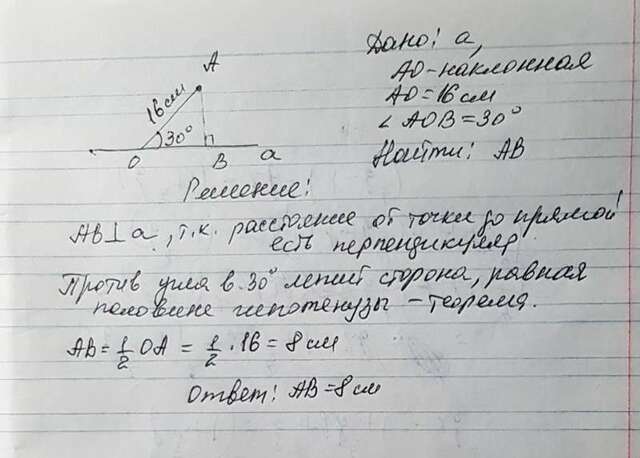 A
16 см
30°
O
B
a
Дано: a,
AO - наклонная
AO = 16 см
∠ AOB = 30°
Найти: AB
Решение:
AB ⊥ a, т.к. расстояние от точки до прямой
есть перпендикуляр
Против угла в 30° лежит сторона, равная
половине гипотенузы - теорема.
AB = 1/2 OA = 1/2 · 16 = 8 см
Ответ: AB = 8 см